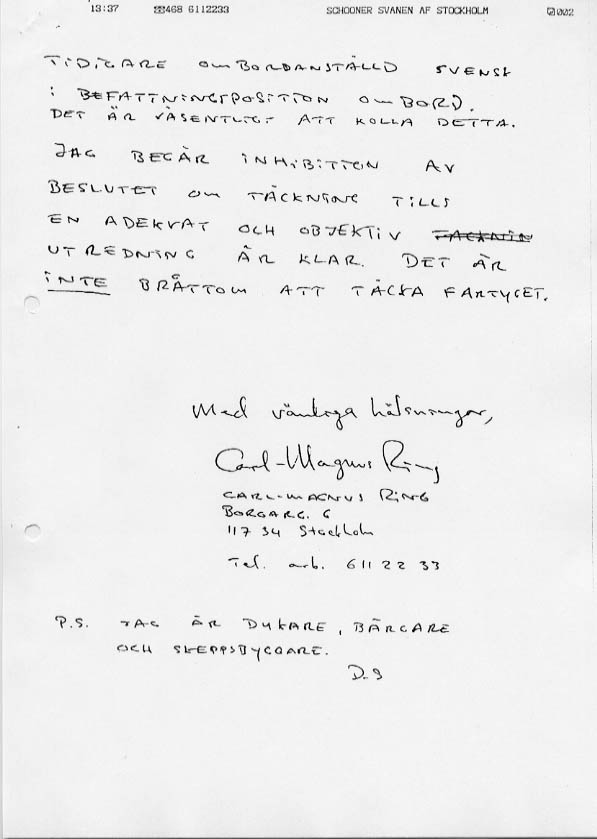 13:37 ☎468 6112233 SCHOONER SVANEN AF STOCKHOLM 002
TIDIGARE OMBORDANSTÄLLD SVENSK
I BEFATTNINGSPOSITION OMBORD.
DET ÄR VÄSENTLIGT ATT KOLLA DETTA.
JAG BEGÄR INHIBITION AV
BESLUTET OM TÄCKNING TILLS
EN ADEKVAT OCH OBJEKTIV TÄCKNIN
UTREDNING ÄR KLAR. DET ÄR
INTE BRÅTTOM ATT TÄCKA FARTYGET.
Med vänliga hälsningar,
Carl-Magnus Ring
CARL-MAGNUS RING
BORGARG. 6
117 34 Stockholm
Tel. arb. 611 22 33
P.S. JAG ÄR DYKARE, BÄRGARE
OCH SKEPPSBYGGARE.
D.S